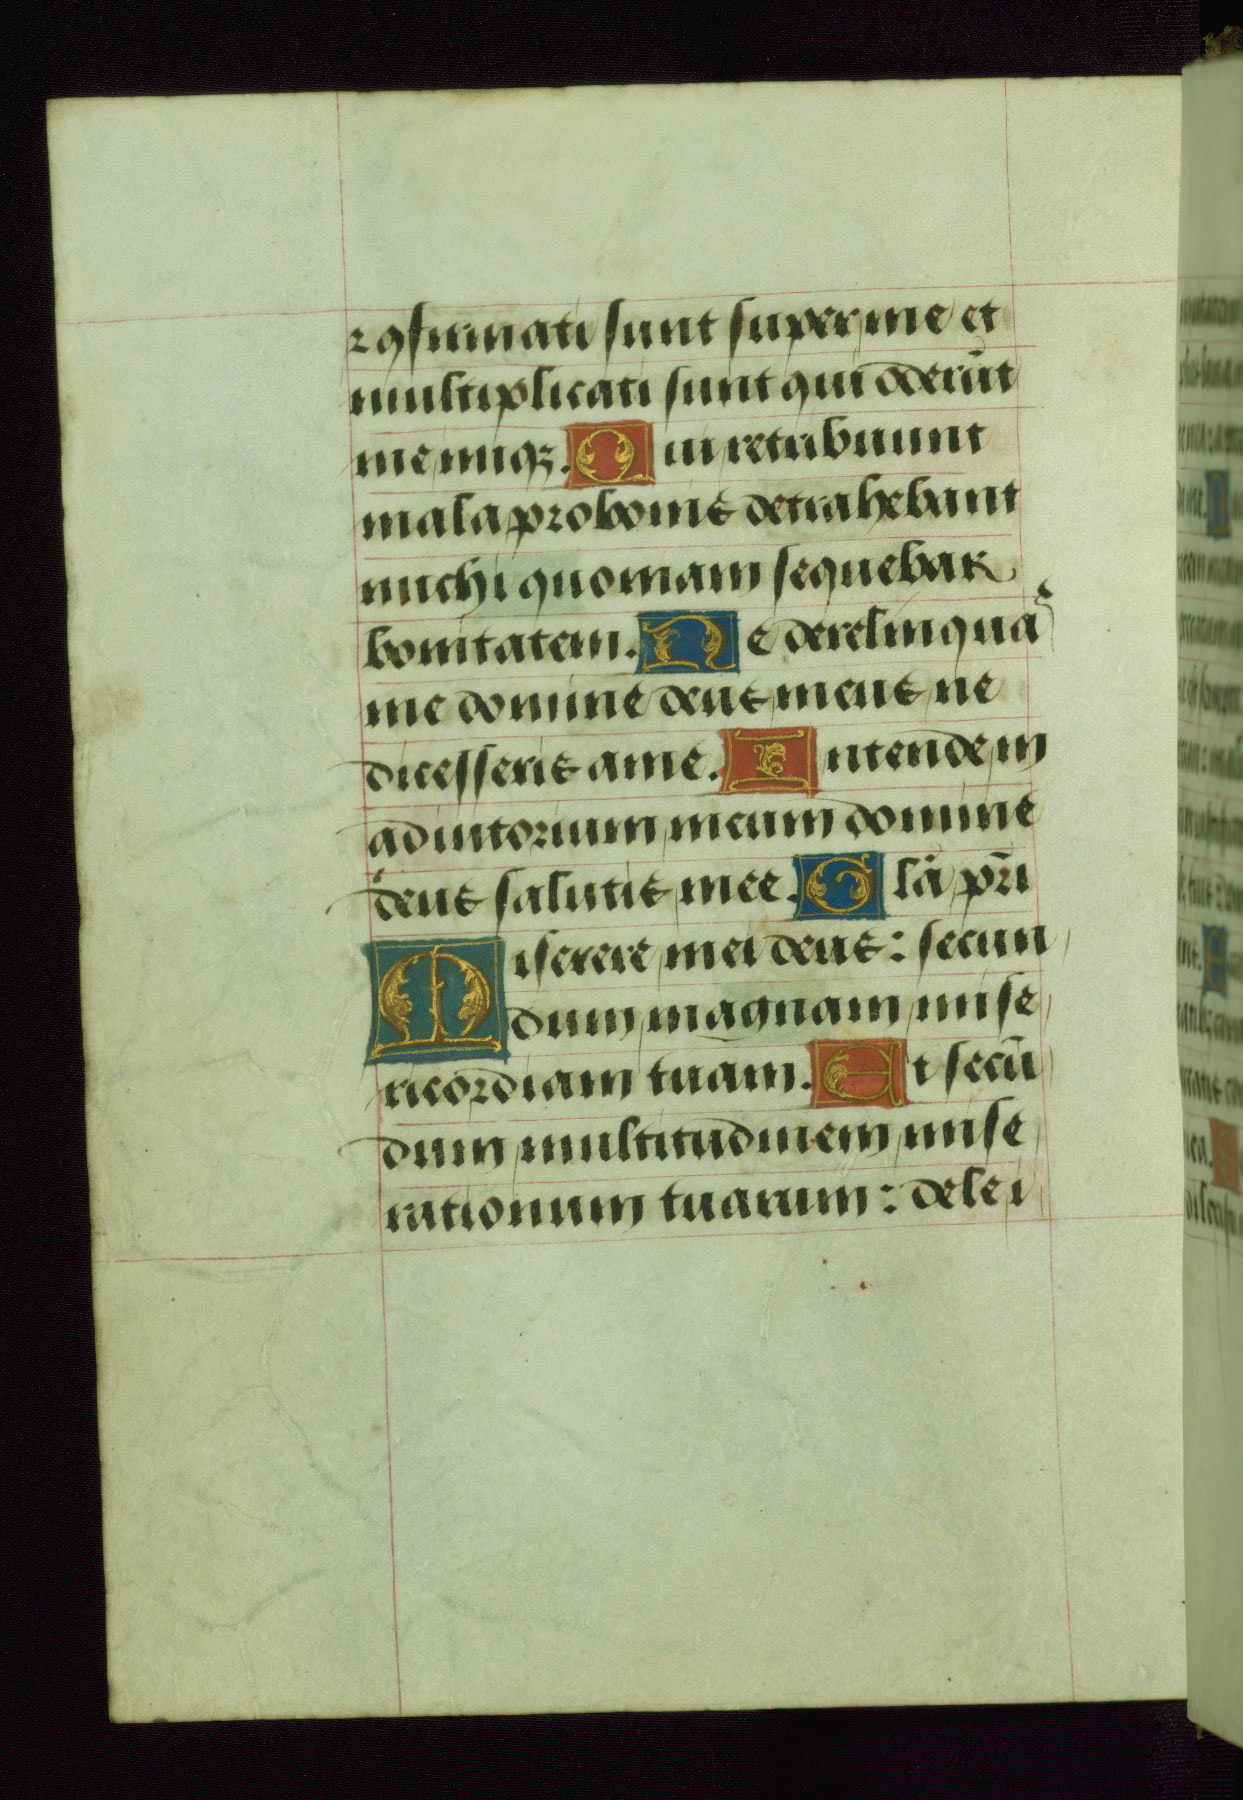 ⁊ ꝯfirmati sunt super me et
multiplicati sunt qui oderūt
me iniqꝫ. Qui retribuunt
mala pro bonis detrahebant
michi quoniam sequebar
bonitatem. Ne derelinquā
me domine deus meus ne
dicesseris a me. Intende in
adiutorium meum domine
deus salutis mee. Glā pr̄i
Miserere mei deus: secun
dum magnam mise
ricordiam tuam. Et secū
dum multitudinem mise
rationum tuarum: dele i